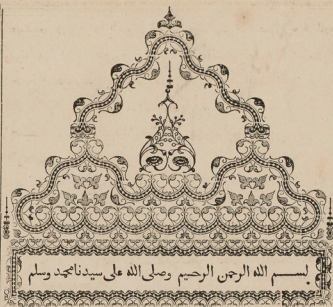 بسم الله الرحمن الرحيم وصلى الله على سيدنا محمد وسلم